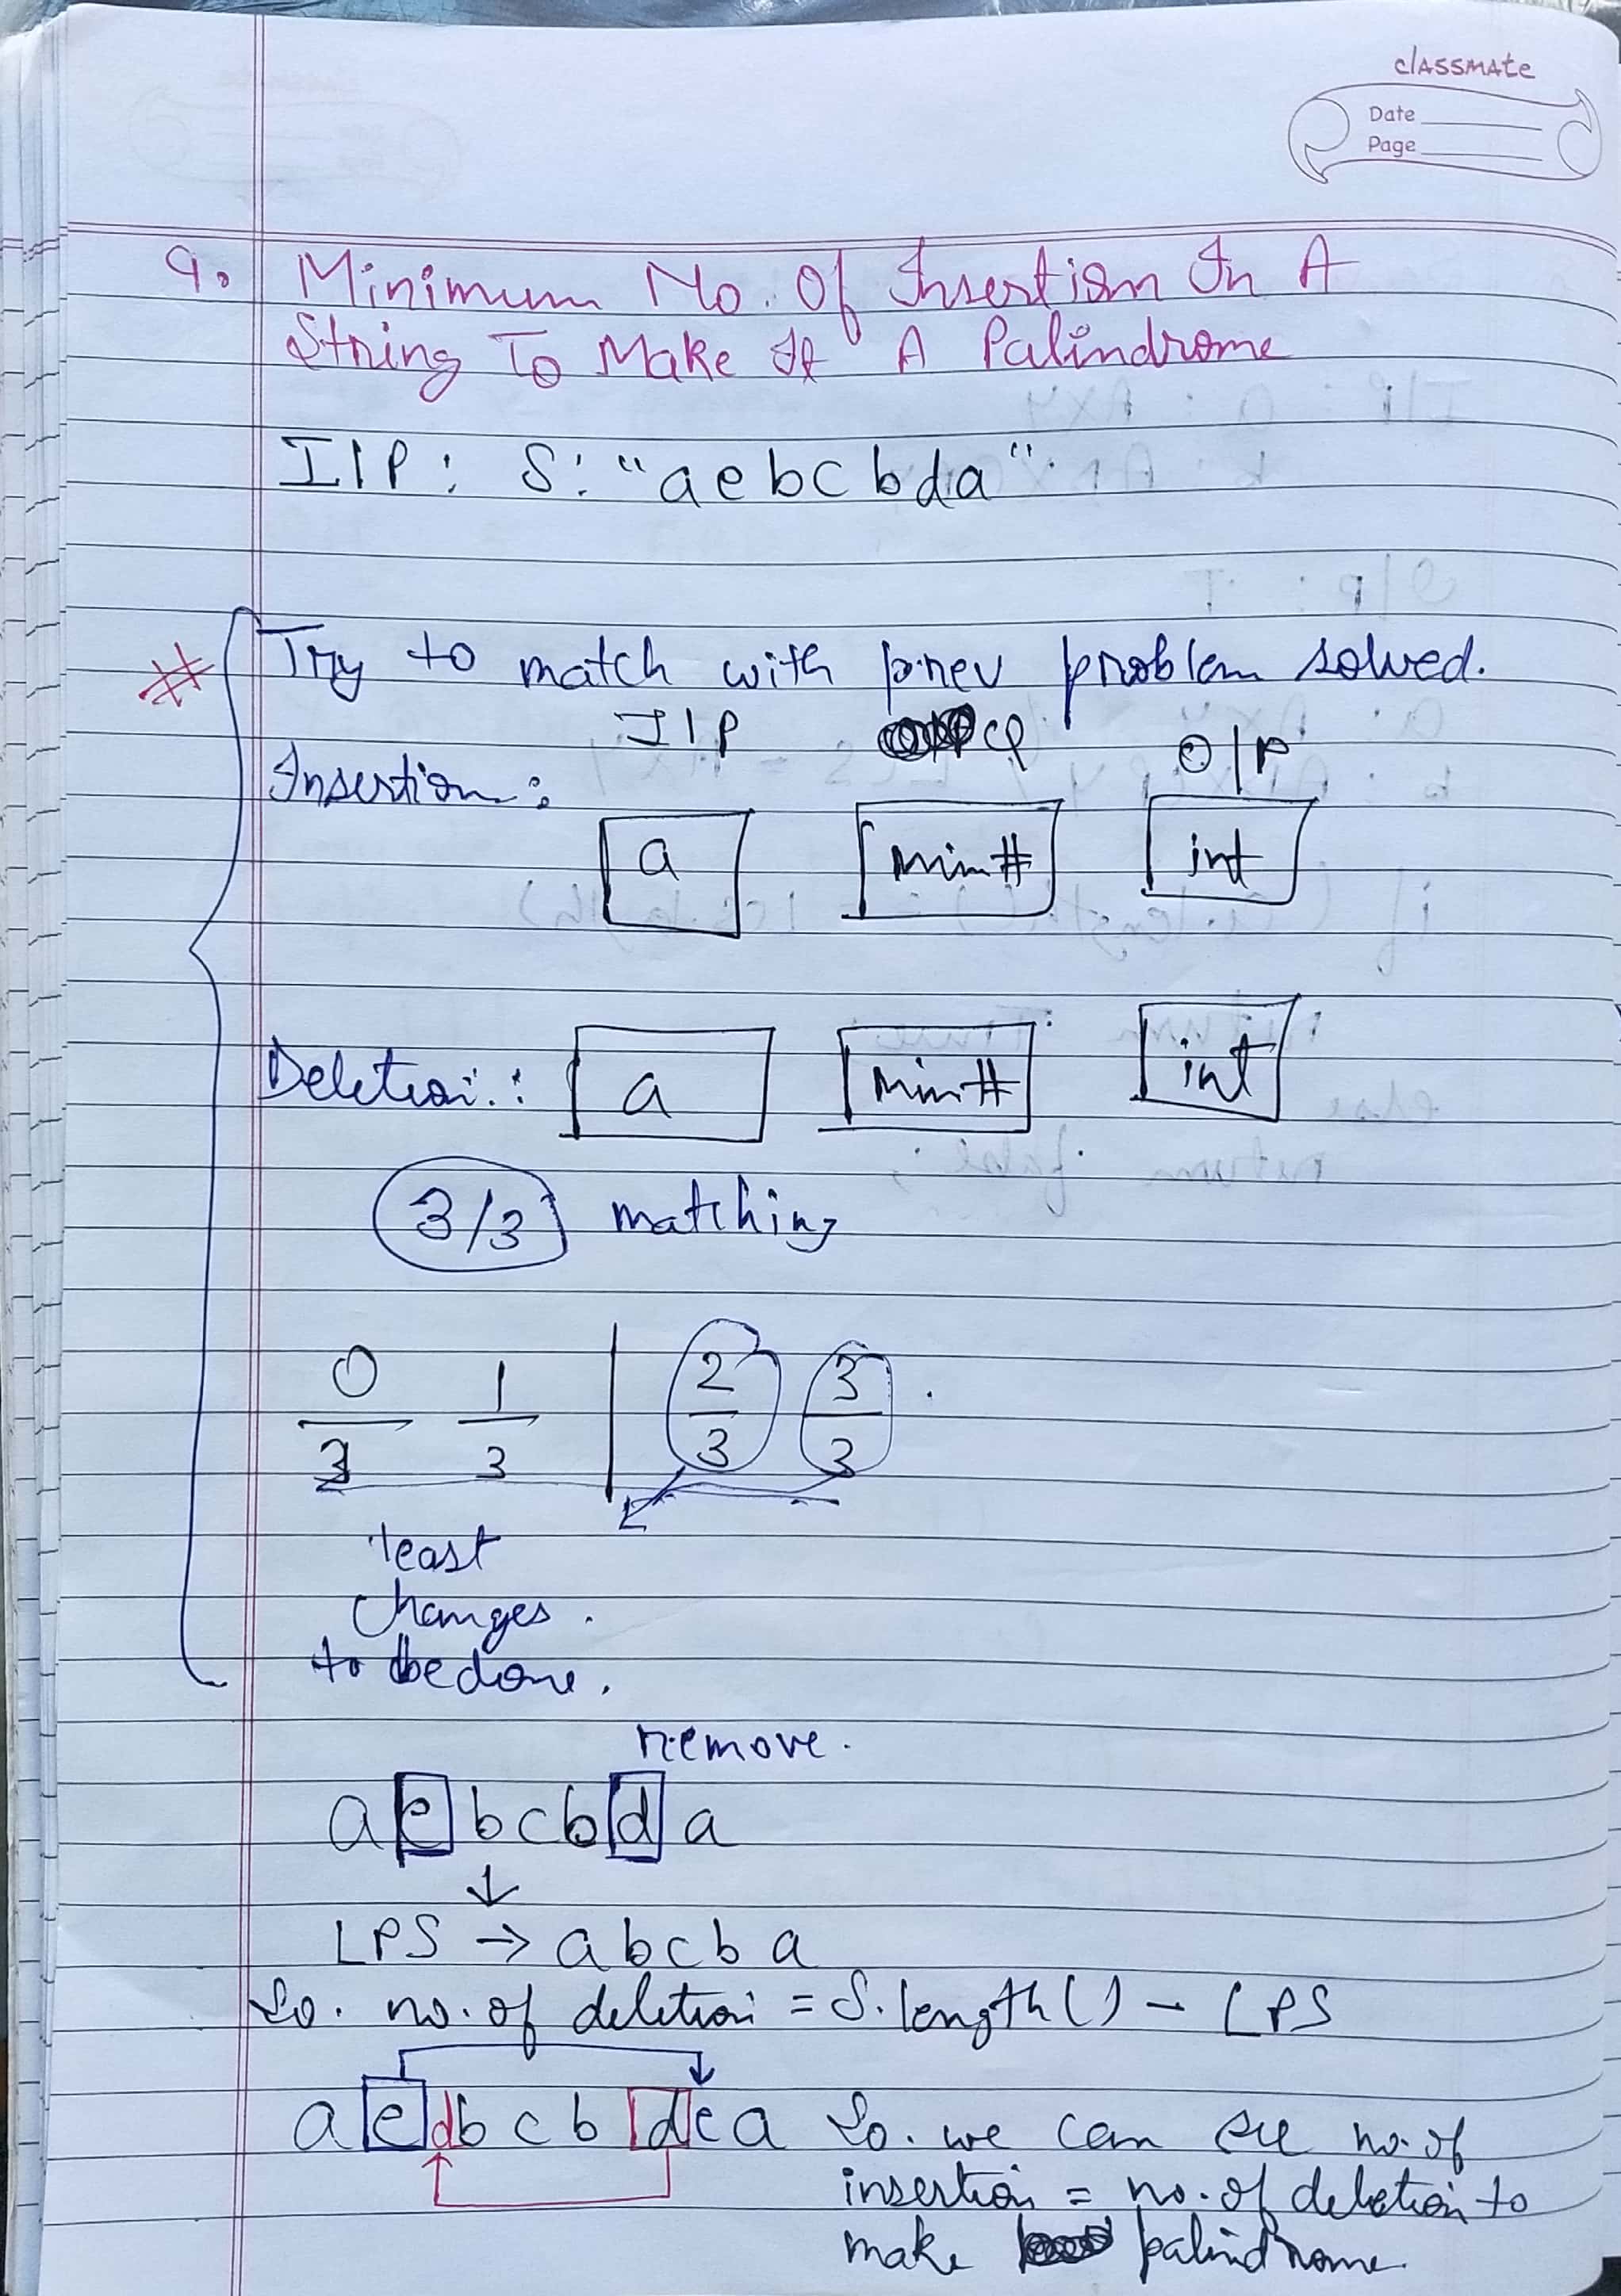 classmate
Date
Page
9. Minimum No. Of Insertion In A
String To Make It A Palindrome
I/P : S: "aebcbda".
# Try to match with prev problem solved.
I/P O/P
Insertion: a min# int
Deletion: a min# int
3/3 matching
0/3 1/3 | 2/3 3/3
least
changes.
to be done.
remove.
a e b c b d a
↓
LPS → a b c b a
So. no. of deletion = S.length() - LPS
a e d b c b d e a So. we can see no. of
insertion = no. of deletion to
make palindrome